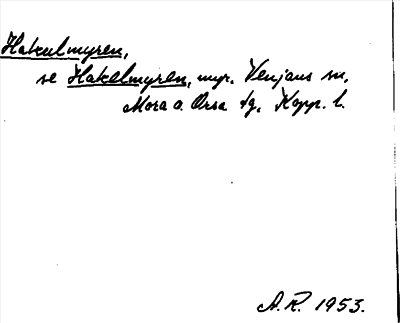 Hakulmyren,
se Hakelmyren, myr. Venjans sn,
Mora o. Orsa tg, Kopp. l.
A.R. 1953.